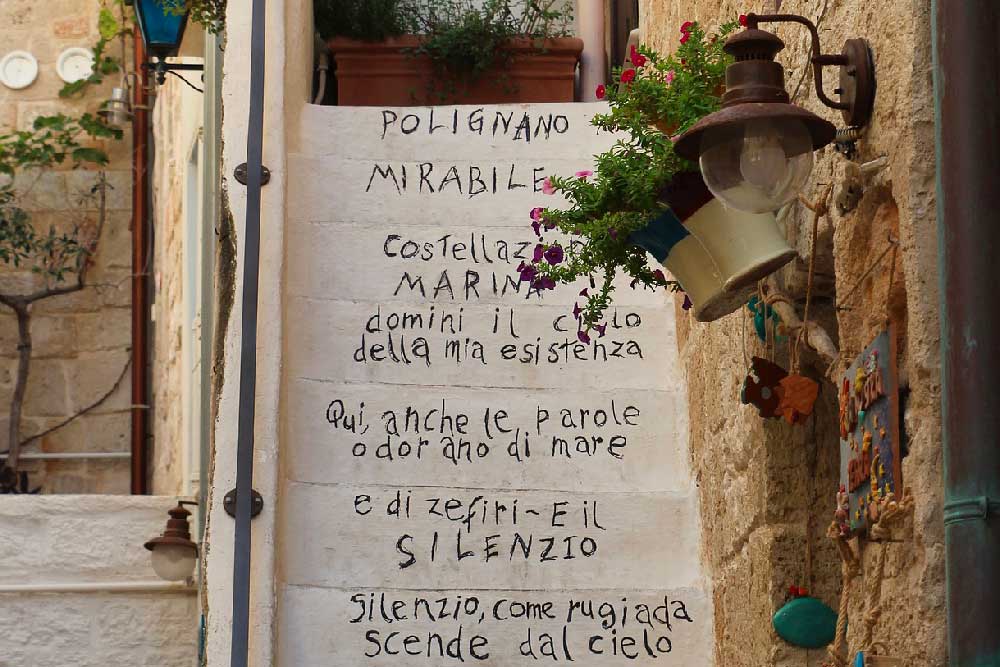 POLIGNANO
MIRABILE
COSTELLAZ
MARINA
domini il cielo
della mia esistenza
Qui, anche le parole
odorano di mare
e di zefiri - E il
SILENZIO
Silenzio, come rugiada
scende dal cielo